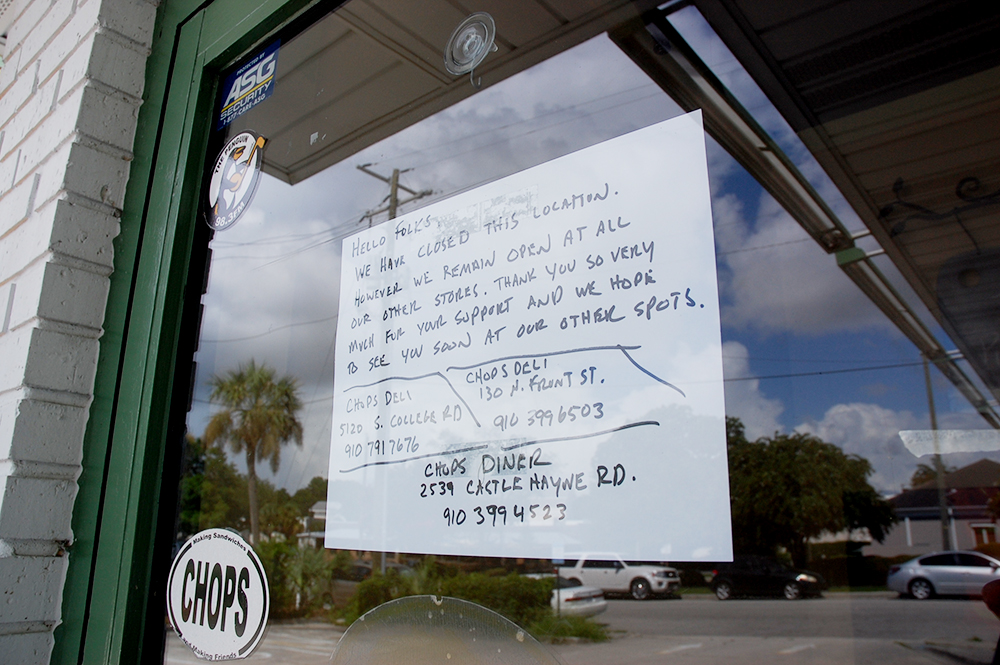 PROTECTED BY
ASG
SECURITY
1-877-CARE-ASG
THE PENGUIN
98.3FM
HELLO FOLKS
WE HAVE CLOSED THIS LOCATION.
HOWEVER WE REMAIN OPEN AT ALL
OUR OTHER STORES. THANK YOU SO VERY
MUCH FOR YOUR SUPPORT AND WE HOPE
TO SEE YOU SOON AT OUR OTHER SPOTS.
CHOPS DELI
5120 S. COLLEGE RD
910 791 7676
CHOPS DELI
130 N. FRONT ST.
910 399 6503
CHOPS DINER
2539 CASTLE HAYNE RD.
910 399 4523
Making Sandwiches
CHOPS
And Making Friends